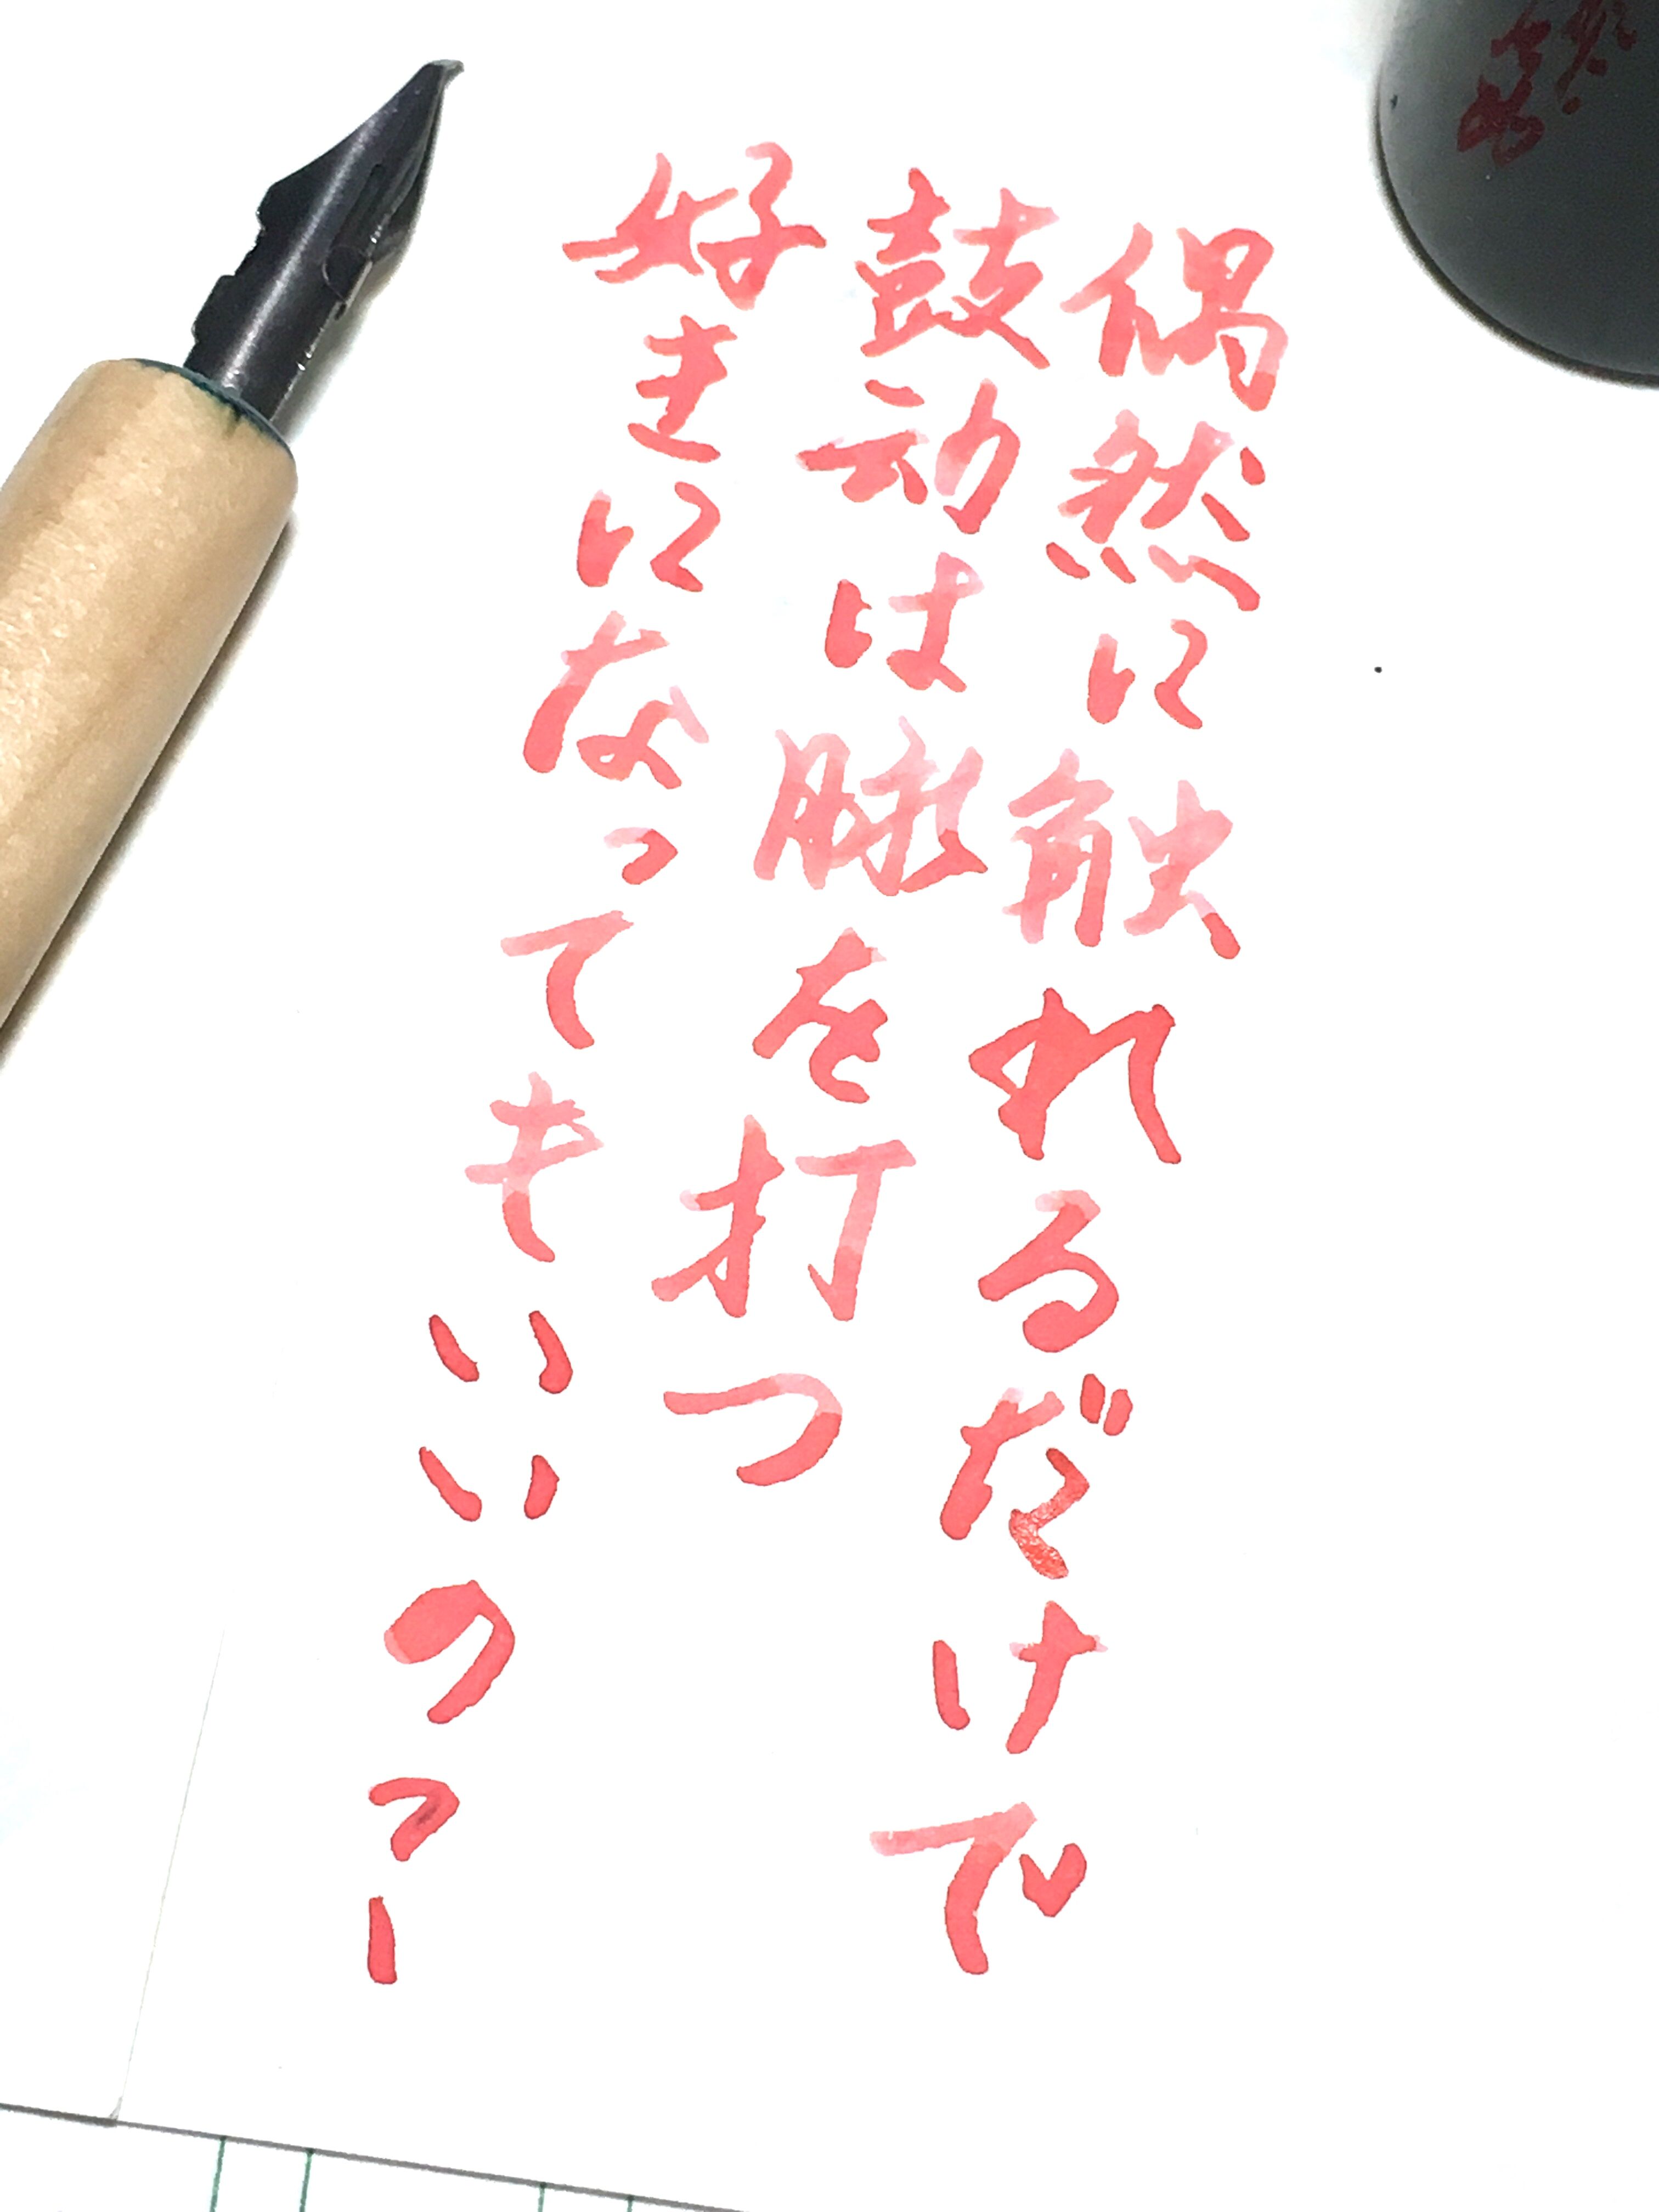 偶然に触れるだけで
鼓動は脈を打つ
好きになってもいいの？